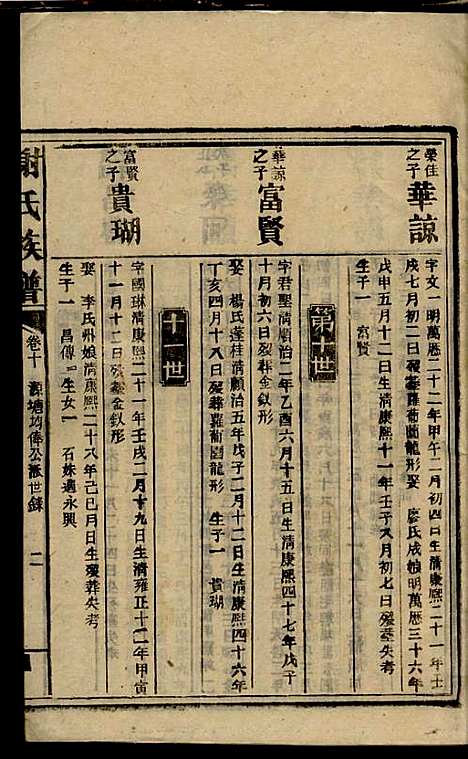 榮佳之子 華諒
字文一明萬歷二十二年甲午二月初四日生清康熙二十一年壬
戌七月初二日歿葬蘿蔔園龍形娶 廖氏成娘明萬歷三十六年
戊申五月十二日生清康熙十一年壬子八月初七日歿墓失考
生子一 富賢
第十世
華諒之子 富賢
字君聖清順治二年乙酉六月十五日生清康熙四十七年戊子
十月初六日歿葬金釵形
娶 楊氏蓬桂清順治五年戊子二月十二日生清康熙四十六年
丁亥四月十八日歿葬蘿蔔園龍形 生子一 貴瑚
十一世
富賢之子 貴瑚
字國琳清康熙二十一年壬戌二月十九日生清雍正十二年甲寅
十一月十二日歿葬金釵形
娶 李氏州娘清康熙二十八年己巳月日生歿葬失考
生子一 昌傳 生女一 石妹適永興
謝氏族譜 卷十 塘均俸公派世錄 二